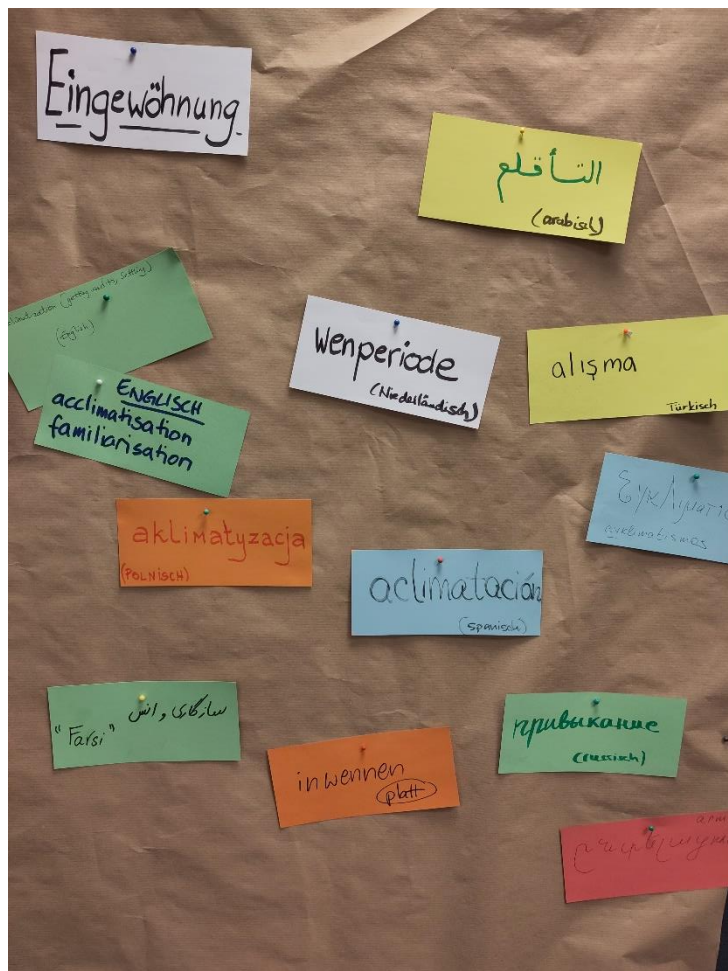 Eingewöhnung
التأقلم
(arabisch)
(getting used to, settling)
(English)
ENGLISCH
acclimatisation
familiarisation
wenperiode
(Niederländisch)
alışma
Türkisch
aklimatyzacja
(POLNISCH)
aclimatación
(spanisch)
سازگاری و انس
"Farsi"
inwennen
platt
привыкание
(russisch)